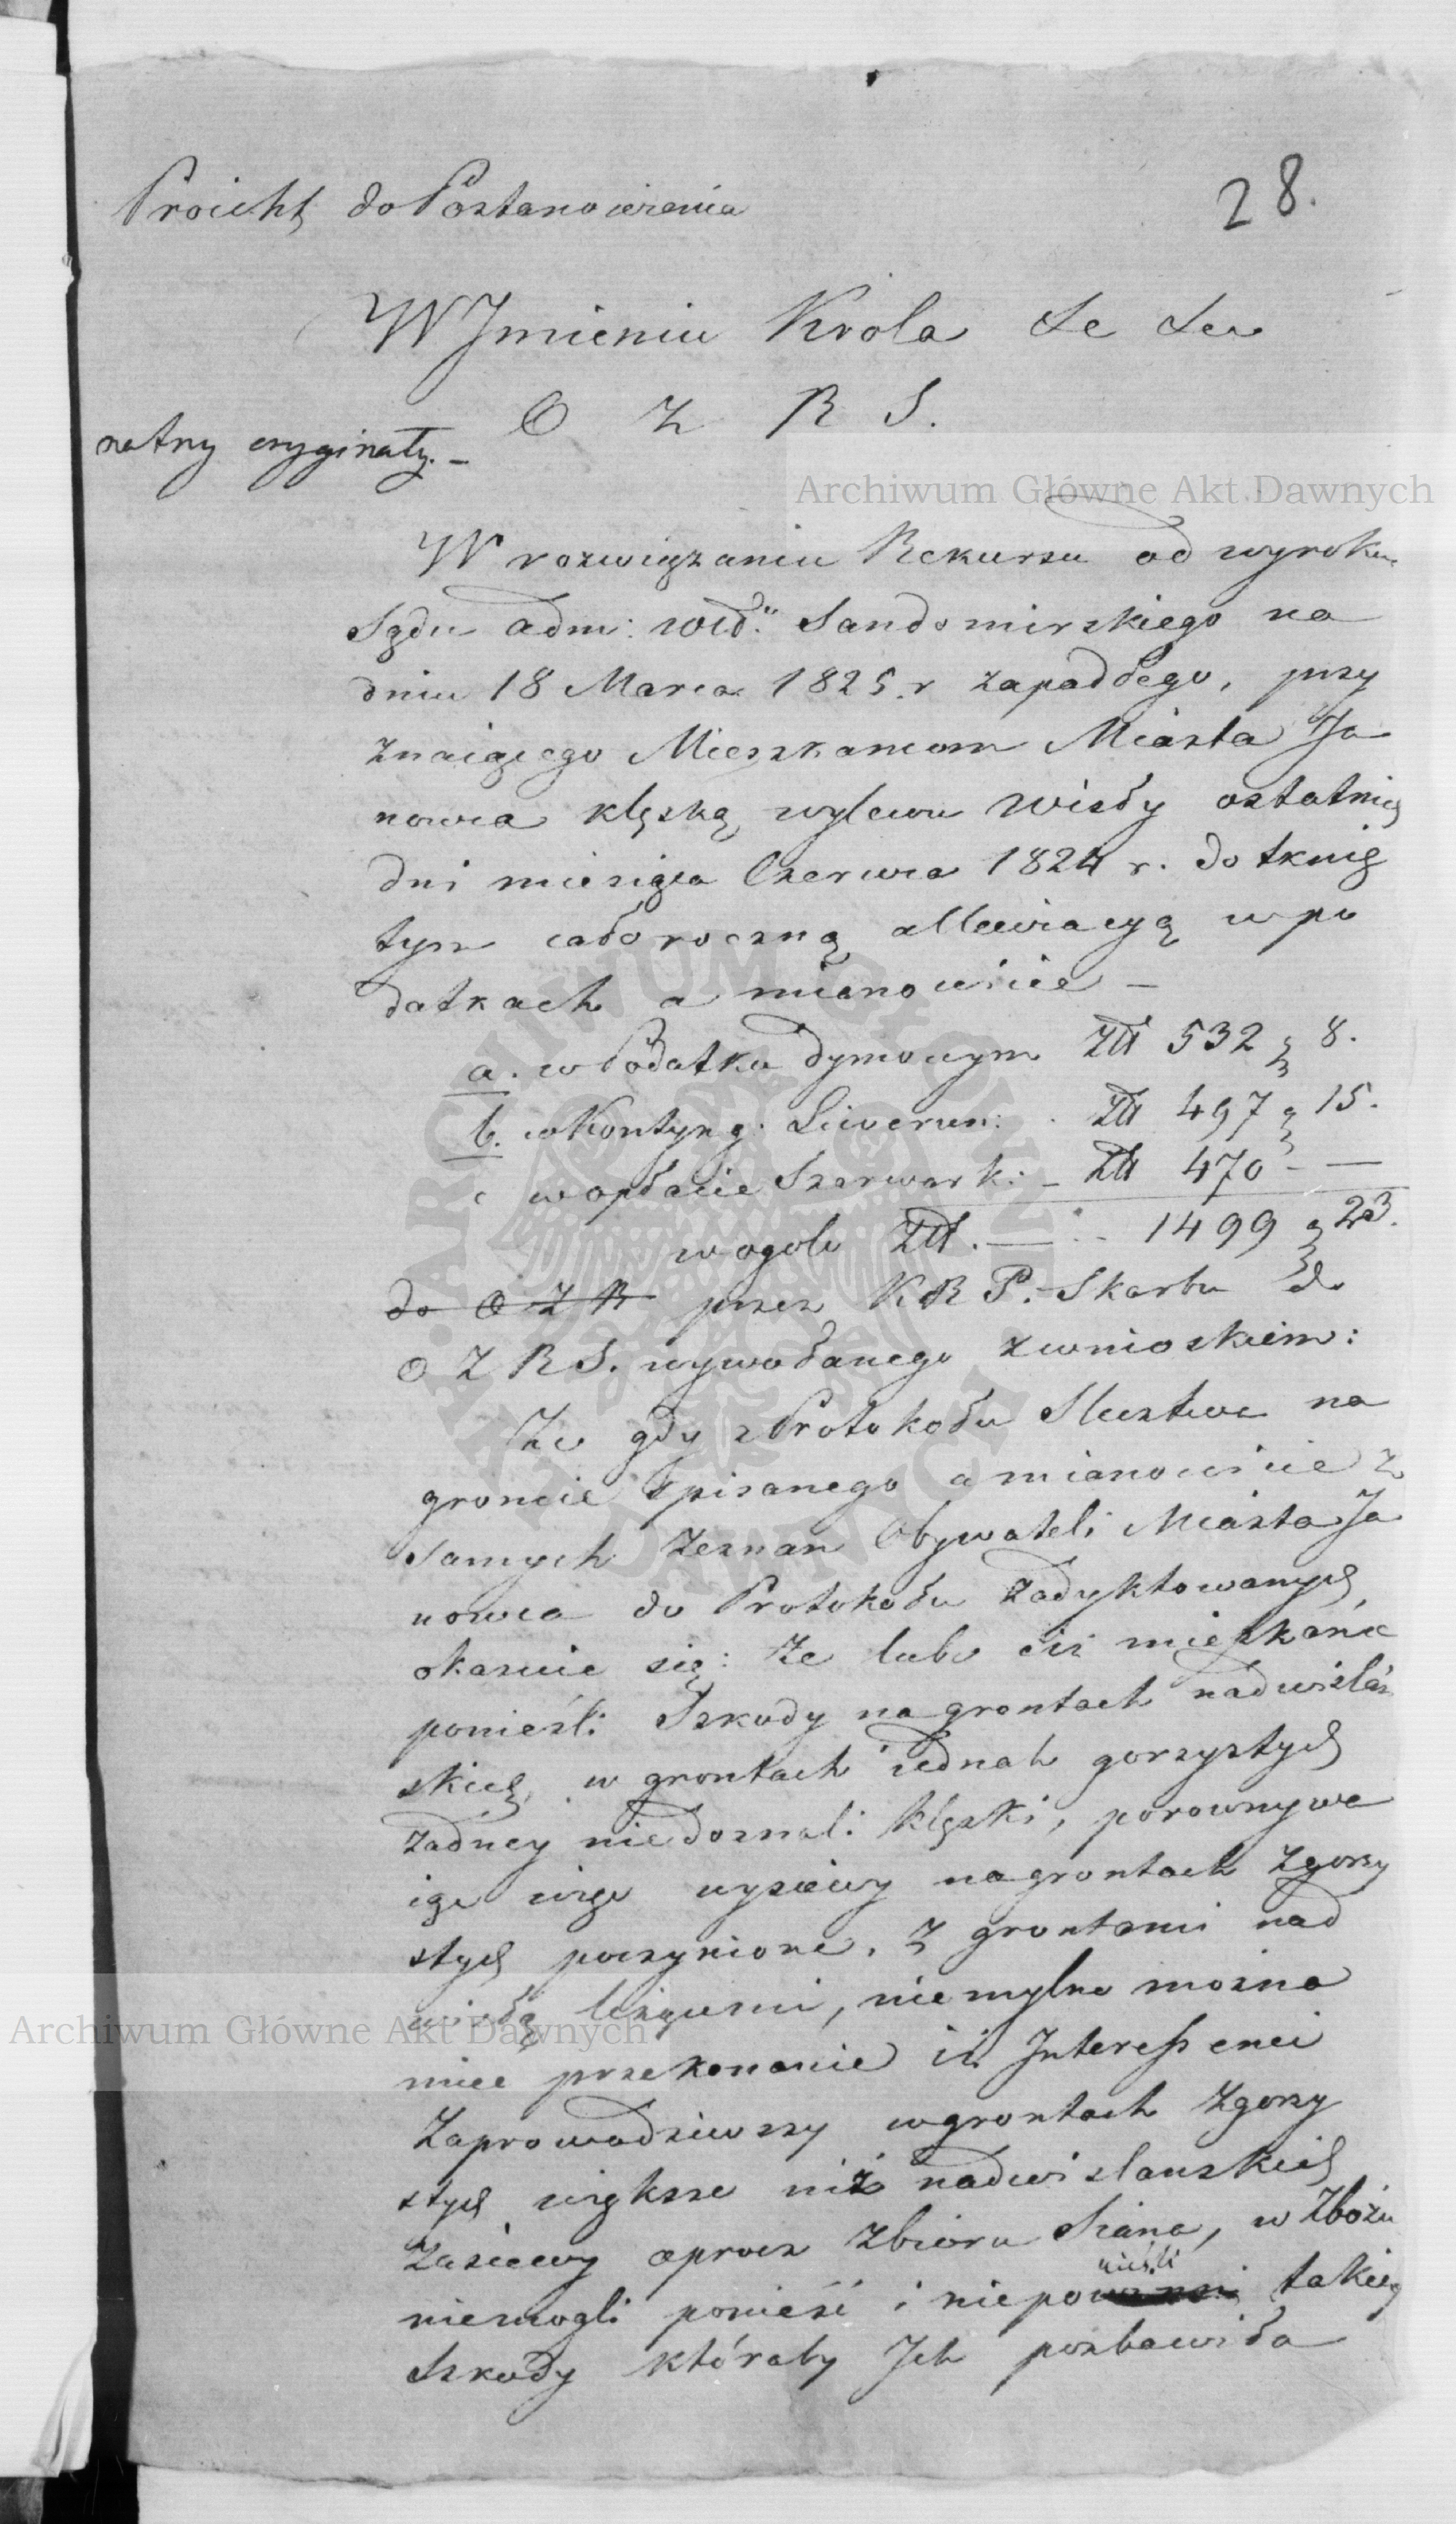 Proiekt do Postanowienia
28.
W Jmieniu Krola &c &c
O Z R S.
na trzy oryginały. –
Archiwum Główne Akt Dawnych
W rozwiązaniu Rekursu od wyroku
Sądu adm: Sandomirskiego na
dniu 18 Marca 1825 r zapadłego, przy
znaiącego Mieszkancom Miasta Ja
nowca klęską wylewu Wisły ostatnich
dni miesiąca Czerwca 1824 r. dotknię
tym całoroczną allewiacyą w po
datkach a mianowicie –
a. w Podatku dymowym Złt 532 g 8.
b. w Kontyng: Liwerun: Złt 497 g 15.
c w opłacie Szarwark: – Złt 470 – —
w ogole Złt. — 1499 g 23.
do O Z R przez K R P. Skarbu do
O Z R S. wywołanego z wnioskiem:
Że gdy z Protokołu Sledztwa na
groncie spisanego a mianowicie z
samych zeznan Obywateli Miasta Ja
nowca do Protokołu zadyktowanych,
okazuie się: że lubo ciż mieszkańce
ponieśli Szkody na grontach nadwiślań
skich, w grontach iednak gorzystych
żadney niedoznali klęski, porownywa
iąc więc wysiewy na grontach zgorzy
stych poczynione, z grontami nad
wisłą leżącemi, niemylne można
mieć przekonanie iż Interessenci
Zaprowadziwszy w grontach Zgorzy
stych większe niż nadwislanskich
Zasiewy oprocz Zbioru Siana, w Zbożu
niemogli ponieść i niepo nieśli takiey
Szkody któraby Jch pozbawiła
ARCHIWUM GŁÓWNE AKT DAWNYCH
Archiwum Główne Akt Dawnych